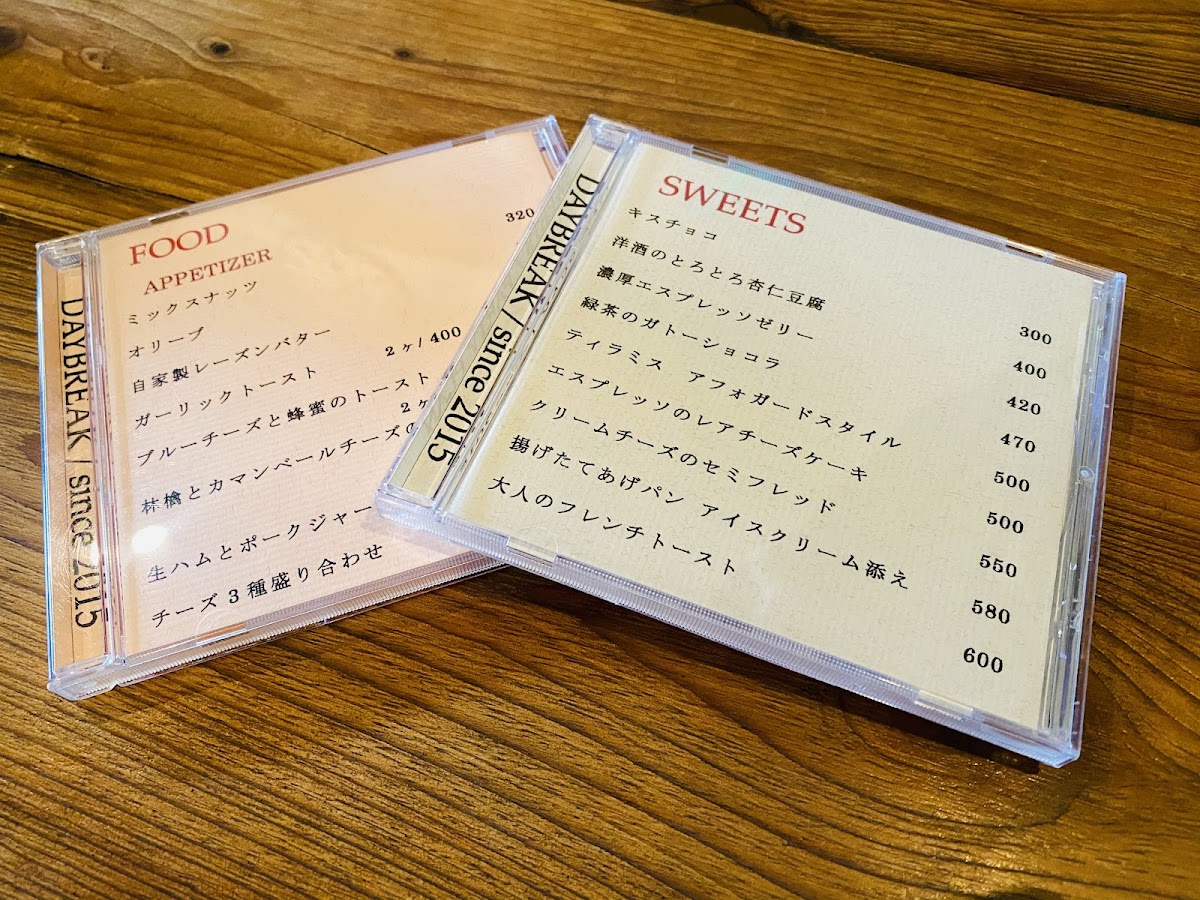 FOOD
APPETIZER
ミックスナッツ 320
オリーブ
自家製レーズンバター
ガーリックトースト 2ヶ/400
ブルーチーズと蜂蜜のトースト 2ヶ
林檎とカマンベールチーズの
生ハムとポークジャー
チーズ3種盛り合わせ
DAYBREAK / since 2015
SWEETS
キスチョコ 300
洋酒のとろとろ杏仁豆腐 400
濃厚エスプレッソゼリー 420
緑茶のガトーショコラ 470
ティラミス アフォガードスタイル 500
エスプレッソのレアチーズケーキ 500
クリームチーズのセミフレッド 550
揚げたてあげパン アイスクリーム添え 580
大人のフレンチトースト 600
DAYBREAK / since 2015